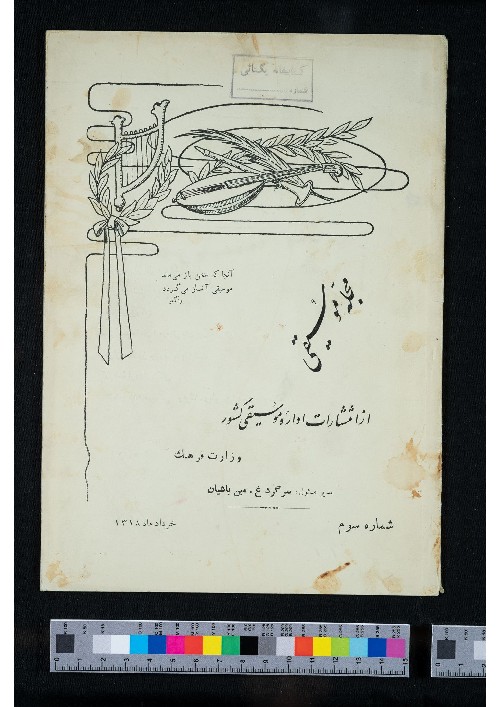 کتابخانه یگنائی
شماره
آنجا که سخن باز می‌ماند
موسیقی آغاز می‌گردد
واگنر
مجله موسیقی
از انتشارات اداره موسیقی کشور
وزارت فرهنگ
مدیر مسئول: سرگرد غ. مین باشیان
شماره سوم
خرداد ماه ۱۳۱۸